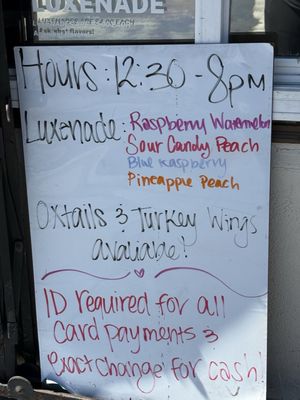 LUXENADE
Hours: 12:30 - 8pm
Luxenade: Raspberry Watermelon
Sour Candy Peach
Blue Raspberry
Pineapple Peach
Oxtails & Turkey Wings
avaliable!
ID required for all
Card payments &
exact change for cash!